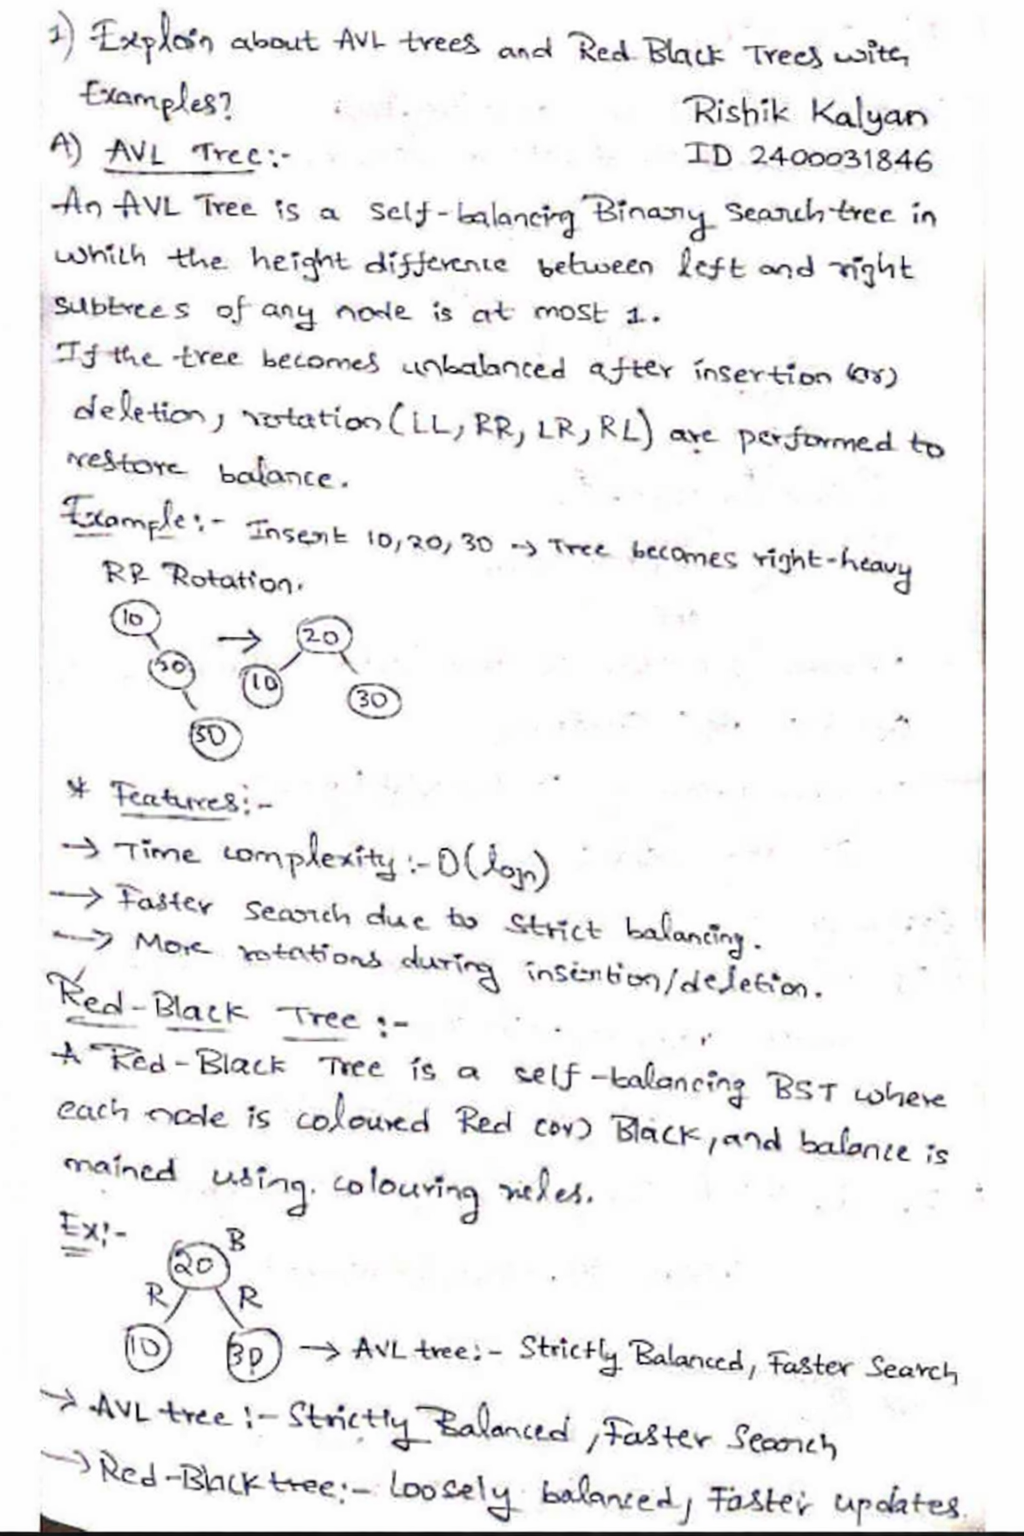 1) Explain about AVL trees and Red Black Trees with
Examples?
Rishik Kalyan
A) AVL Tree:-
ID 2400031846
An AVL Tree is a self-balancing Binary Search tree in
which the height difference between left and right
subtrees of any node is at most 1.
If the tree becomes unbalanced after insertion (or)
deletion, rotation (LL, RR, LR, RL) are performed to
restore balance.
Example:- Insert 10, 20, 30 → Tree becomes right-heavy
RR Rotation.
10 → 20
20 10
30
30
* Features:-
→ Time complexity :- O(logn)
→ Faster Search due to Strict balancing.
→ More rotations during insertion/deletion.
Red-Black Tree :-
A Red-Black Tree is a self-balancing BST where
each node is coloured Red (or) Black, and balance is
mained using. colouring rules.
Ex:-
20 B
R R
10 30 → AVL tree:- Strictly Balanced, Faster Search
→ AVL tree :- Strictly Balanced, Faster Search
→ Red-Black tree:- Loosely balanced, Faster updates.